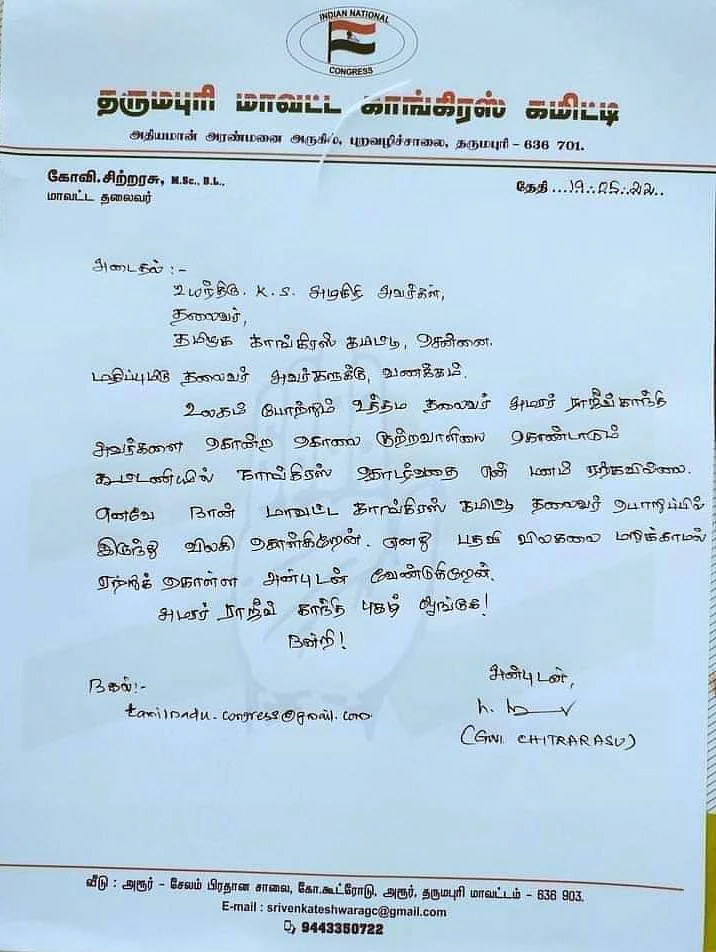 INDIAN NATIONAL
CONGRESS
தருமபுரி மாவட்ட காங்கிரஸ் கமிட்டி
அதியமான் அரண்மனை அருகில், புறவழிச்சாலை, தருமபுரி - 636 701.
கோவி.சிற்றரசு, M.Sc., B.L.,
மாவட்ட தலைவர்
தேதி ...19.05.22..
அடைதல் :-
உயர்திரு. K.S. அழகிரி அவர்கள்,
தலைவர்,
தமிழக காங்கிரஸ் கமிட்டி, சென்னை.
மதிப்புமிகு தலைவர் அவர்களுக்கு, வணக்கம்.
உலகம் போற்றும் உத்தம தலைவர் அமரர் ராஜீவ்காந்தி
அவர்களை கொன்ற கொலை குற்றவாளியை கொண்டாடும்
கூட்டணியில் காங்கிரஸ் தொடர்வதை என் மனம் ஏற்கவில்லை.
எனவே நான் மாவட்ட காங்கிரஸ் கமிட்டி தலைவர் பொறுப்பில்
இருந்து விலகி கொள்கிறேன். எனது பதவி விலகலை மறுக்காமல்
ஏற்றுக் கொள்ள அன்புடன் வேண்டுகிறேன்.
அமரர் ராஜீவ் காந்தி புகழ் ஓங்குக!
நன்றி!
நகல்:-
tamilnadu.congress@gmail.com
அன்புடன்,
(GOVI. CHITRARASU)
வீடு : அரூர் - சேலம் பிரதான சாலை, கோ.கூட்ரோடு, அரூர், தருமபுரி மாவட்டம் - 636 903.
E-mail : srivenkateshwaragc@gmail.com
9443350722